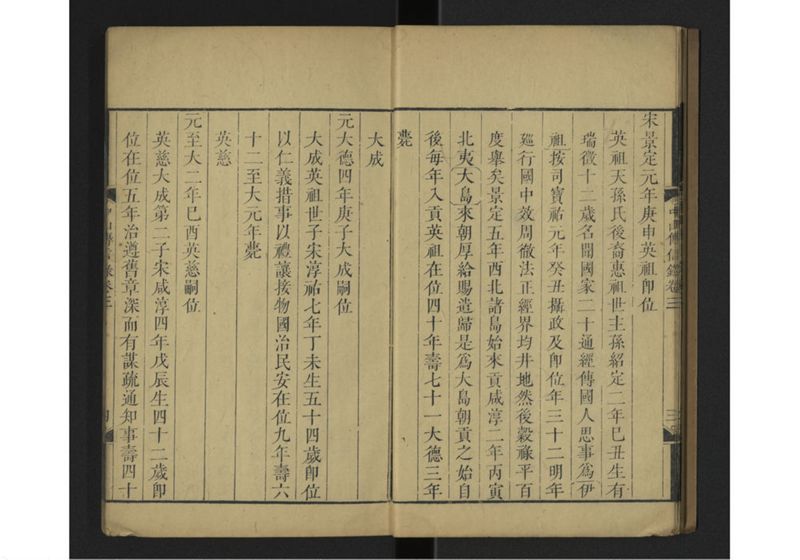 宋景定元年庚申英祖卽位
英祖天孫氏後裔惠祖世主孫紹定二年巳丑生有
瑞徵十二歲名聞國家二十通經傳國人思事爲伊
祖按司寶祐元年癸丑攝政及卽位年三十二明年
廵行國中效周徹法正經界均井地然後穀祿平百
度舉矣景定五年西北諸島始來貢咸淳二年丙寅
北夷大島來朝厚給賜遣歸是爲大島朝貢之始自
後每年入貢英祖在位四十年壽七十一大德三年
薨
大成
元大德四年庚子大成嗣位
大成英祖世子宋淳祐七年丁未生五十四歲卽位
以仁義措事以禮讓接物國治民安在位九年壽六
十二至大元年薨
英慈
元至大二年巳酉英慈嗣位
英慈大成第二子宋咸淳四年戊辰生四十二歲卽
位在位五年治遵舊章深而有謀疏通知事壽四十
中山傳信錄卷三
中山傳信錄卷三